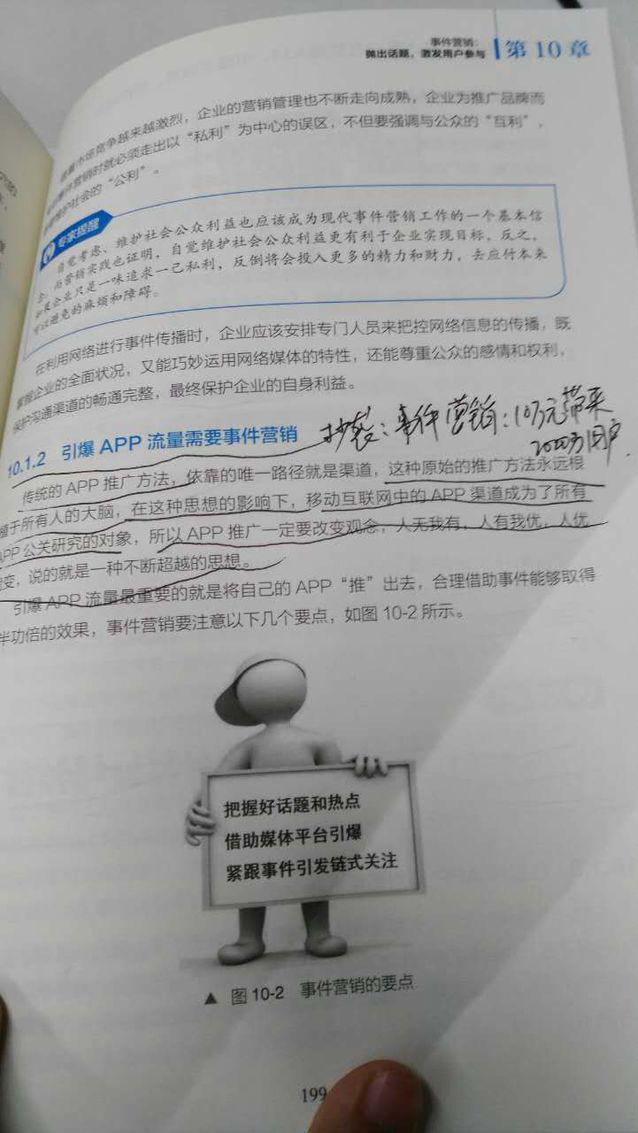 事件营销:
抛出话题，激发用户参与
第 10 章
市场竞争越来越激烈，企业的营销管理也不断走向成熟，企业为推广品牌而
事件营销时就必须走出以“私利”为中心的误区，不但要强调与公众的“互利”，
维护社会的“公利”。
专家提醒
自觉考虑、维护社会公众利益也应该成为现代事件营销工作的一个基本信
念。而营销实践也证明，自觉维护社会公众利益更有利于企业实现目标。反之，
如果企业只是一味追求一己私利，反倒将会投入更多的精力和财力，去应付本来
可以避免的麻烦和障碍。
在利用网络进行事件传播时，企业应该安排专门人员来把控网络信息的传播，既
掌握企业的全面状况，又能巧妙运用网络媒体的特性，还能尊重公众的感情和权利，
保护沟通渠道的畅通完整，最终保护企业的自身利益。
抄袭：事件营销：10万元带来
2000万用户
10.1.2 引爆 APP 流量需要事件营销
传统的 APP 推广方法，依靠的唯一路径就是渠道，这种原始的推广方法永远根
植于所有人的大脑，在这种思想的影响下，移动互联网中的 APP 渠道成为了所有
APP 公关研究的对象，所以 APP 推广一定要改变观念，人无我有，人有我优，人优
变，说的就是一种不断超越的思想。
引爆 APP 流量最重要的就是将自己的 APP“推”出去，合理借助事件能够取得
半功倍的效果，事件营销要注意以下几个要点，如图 10-2 所示。
把握好话题和热点
借助媒体平台引爆
紧跟事件引发链式关注
▲ 图 10-2 事件营销的要点
199